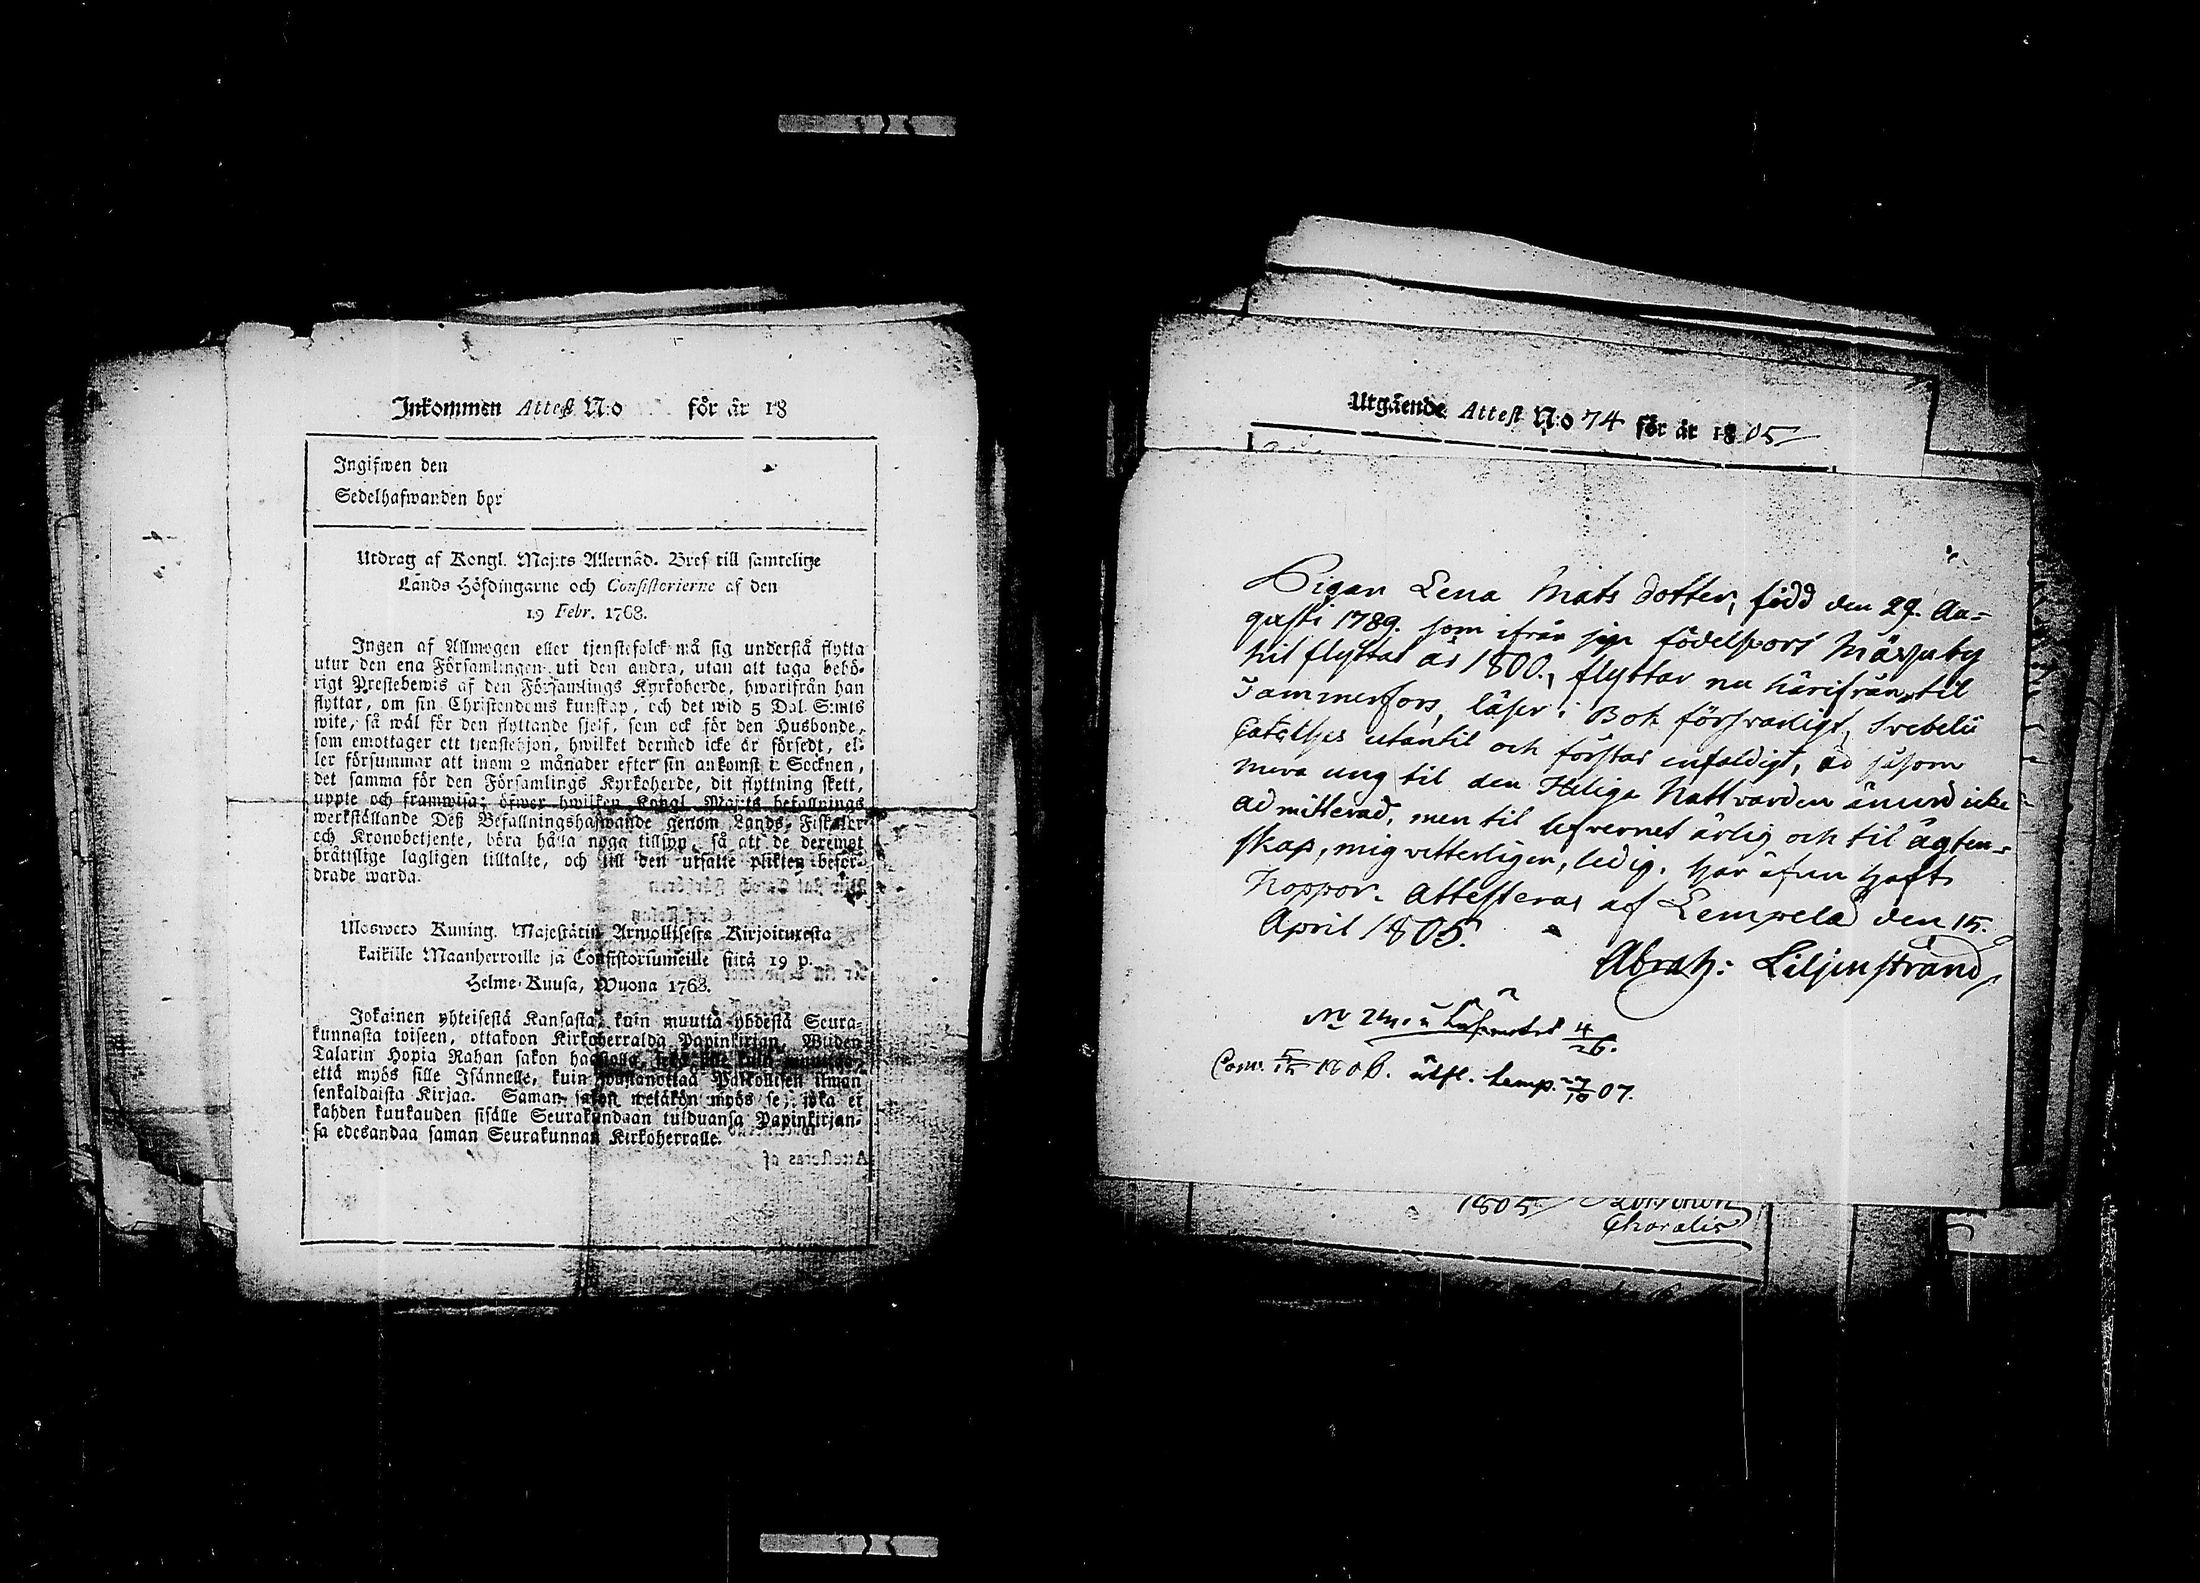 Inkommen Attest N:o för år 18
Ingifwen den
Sedelhafwanden bör
Utdrag af Kongl. Maj:ts Allernåd. Bref till samtelige
Lands Höfdingarne och Consistorierne af den
19 Febr. 1768.
Ingen af Allmogen eller tjenstefolck må sig understå flytta
utur den ena Församlingen uti den andra, utan att taga behö-
rigt Prestebewis af den Församlings Kyrkoherde, hwarifrån han
flyttar, om sin Christendoms kunskap, och det wid 5 Dal. S:mts
wite, så wäl för den flyttande sjelf, som ock för den Husbonde,
som emottager ett tjenstehjon, hwilket dermed icke är försedt, el-
ler försummar att inom 2 månader efter sin ankomst i Socknen,
det samma för den Församlings Kyrkoherde, dit flyttning skett,
uppte och framwisa; öfwer hwilken Kongl. Maj:ts befallnings
werkställande Deß Befallningshafwande genom Lands-Fiskaler
och Kronobetjente, böra hålla noga tillsyn, så att de deremot
bråttslige lagligen tilltalte, och till den utsatte plikten beför-
drade warda.
Ulosweto Kuning. Majestätin Armollisesta Kirjoituxesta
kaikille Maanherroille ja Consistoriumeille siitä 19 p.
Helme-Kuusa, Wuona 1768.
Jokainen yhteisestä Kansasta, kuin muuttä yhdestä Seura-
kunnasta toiseen, ottakoon Kirkoherralda Papinkirjan, Wiiden
Talarin Hopia Rahan sakon
että myös sille Isännelle, kuin ilman
senkaldaista Kirjaa. Saman sakon wetäkön myös se, joka ei
kahden kuukauden sisälle Seurakundaan tulduansa Papinkirjan-
sa edesandaa saman Seurakunnan Kirkoherralle.
Attesteras af
Utgående Attest N:o 74 för år 1805
Pigan Lena Mats dotter, född den 29. Au-
gusti 1789. som ifrån sin födelseort
hit flyttat år 1800., flyttar nu härifrån til
Tammerfors, läser i Bok försvarligt, Svebelii
Cateches utantil och förstår enfaldigt, är såsom
mera ung til den Heliga Nattvarden ännu icke
admitterad, men til lefvernet ärlig och til ägten-
skap, mig vetterligen, ledig. har äfven haft
koppor. Attesteras af Lempelä den 15.
April 1805.
Abrah: Liljenstrand
4/26.
Com. 1806. utfl. Lemp. 7/10 07.
1805
Choralis